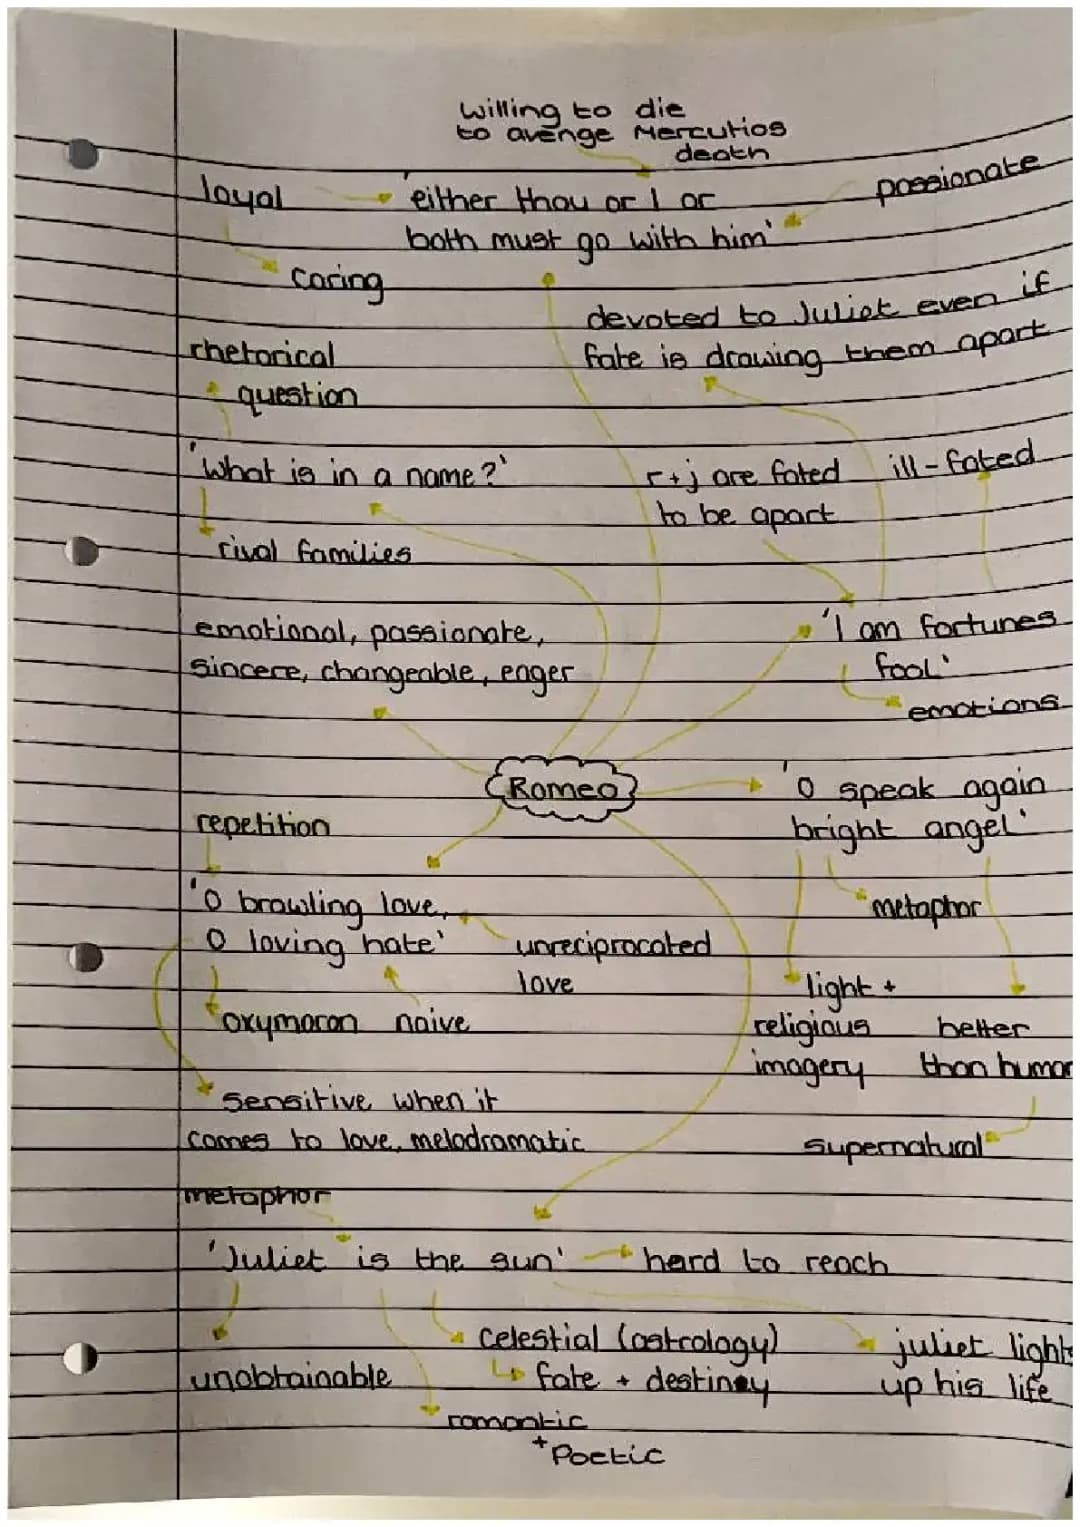 willing to die
to avenge Mercutios
death
loyal
'either thou or I or
both must go with him'
passionate
caring
devoted to Juliet even if
fate is drawing them apart
rhetorical
question
'What is in a name?'
r+j are fated
to be apart
ill-fated
rival families
emotional, passionate,
sincere, changeable, eager
'I am fortunes
fool'
emotions
Romeo
'O speak again
bright angel'
repetition
metaphor
'O brawling love,
O loving hate'
unreciprocated
love
oxymoron
naive
light +
religious
imagery
better
than human
sensitive when it
comes to love, melodramatic
supernatural
metaphor
'Juliet is the sun'
hard to reach
celestial (astrology)
fate + destiney
juliet lights
up his life
unobtainable
romantic
+ Poetic